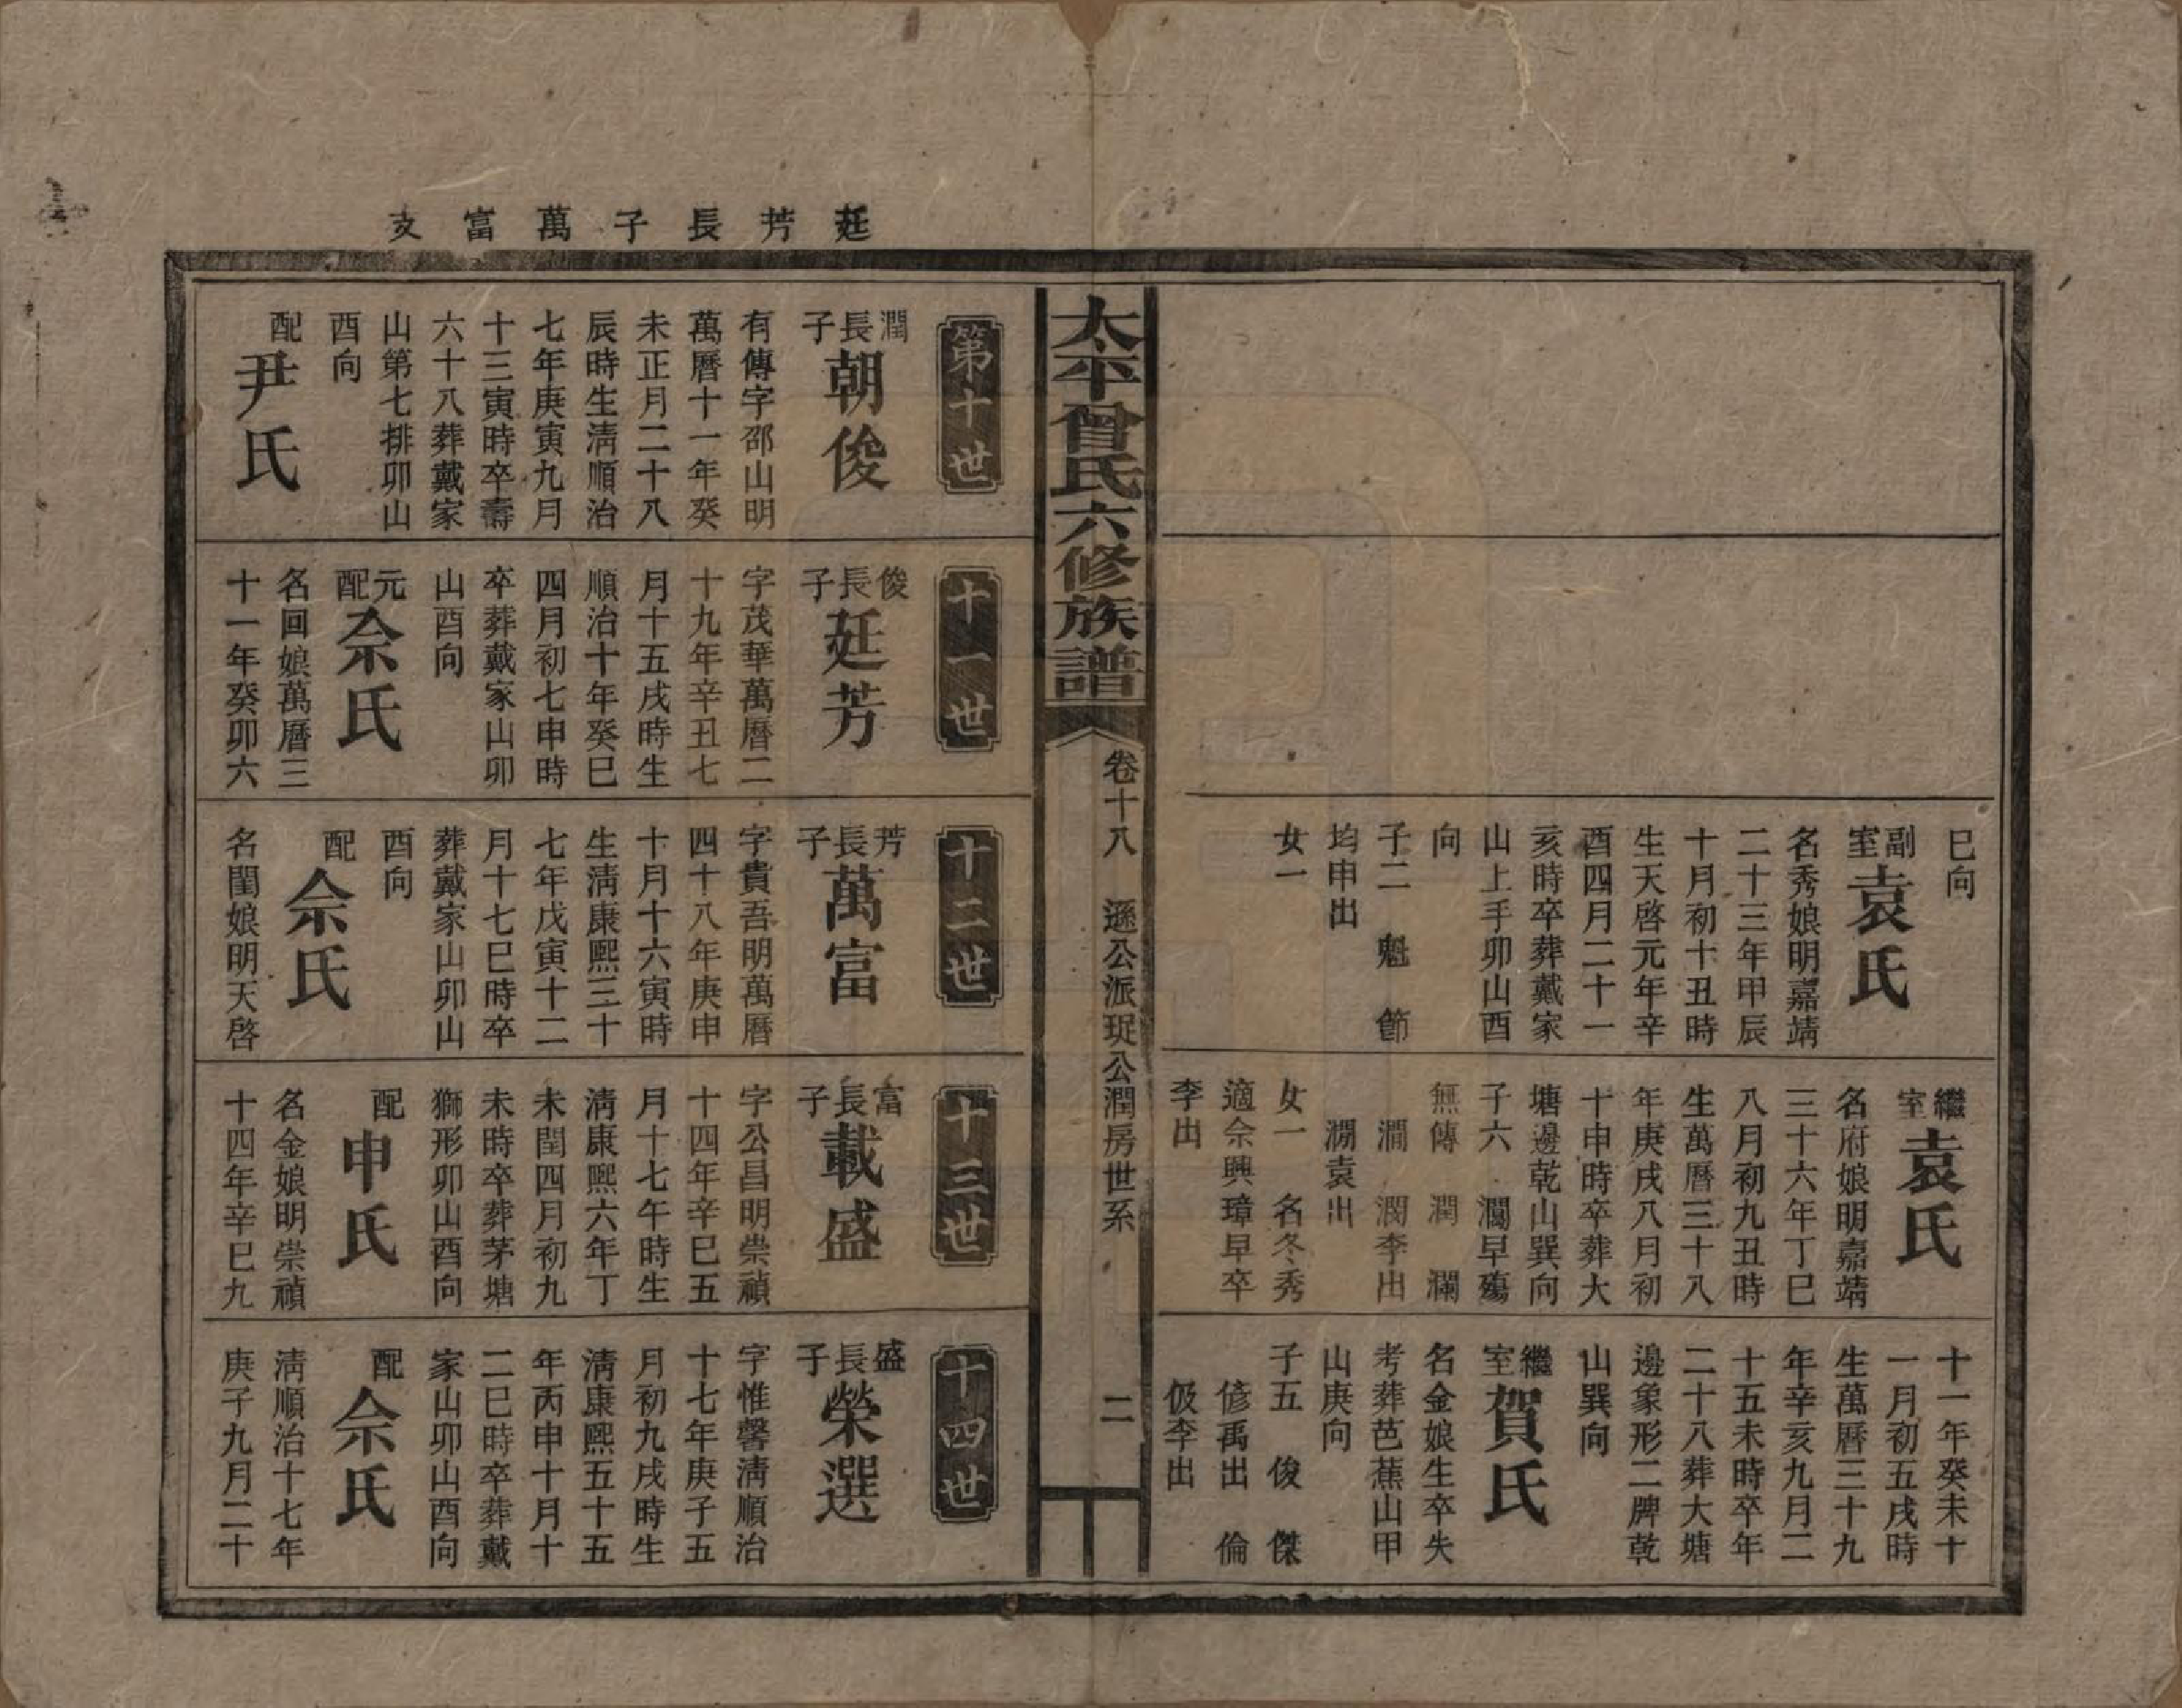 巳向
副室袁氏
名秀娘明嘉靖
二十三年甲辰
十月初十丑時
生天啓元年辛
酉四月二十一
亥時卒葬戴家
山上手卯山酉
向
子二 魁 節
均申出
女一
繼室袁氏
名府娘明嘉靖
三十六年丁巳
八月初九丑時
生萬曆三十八
年庚戌八月初
十申時卒葬大
塘邊乾山巽向
子六 瀾早殤
無傳 潤 瀾
澗 潤李出
淜袁出
女一 名冬秀
適佘興璋早卒
李出
十一年癸未十
一月初五戌時
生萬曆三十九
年辛亥九月二
十五未時卒年
二十八葬大塘
邊象形二牌乾
山巽向
繼室賀氏
名金娘生卒失
考葬芭蕉山甲
山庚向
子五 俊 傑
偐禹出 倫
伋李出
太平曾氏六修族譜
卷十八 遜公派珽公潤房世系 二
廷芳長子萬富支
第十世
潤長子朝俊
有傳字邵山明
萬曆十一年癸
未正月二十八
辰時生清順治
七年庚寅九月
十三寅時卒壽
六十八葬戴家
山第七排卯山
酉向
配尹氏
十一世
俊長子廷芳
字茂華萬曆二
十九年辛丑七
月十五戌時生
順治十年癸巳
四月初七申時
卒葬戴家山卯
山酉向
元配佘氏
名回娘萬曆三
十一年癸卯六
十二世
芳長子萬富
字貴吾明萬曆
四十八年庚申
十月十六寅時
生清康熙三十
七年戊寅十二
月十七巳時卒
葬戴家山卯山
酉向
配佘氏
名閏娘明天啓
十三世
富長子載盛
字公昌明崇禎
十四年辛巳五
月十七午時生
清康熙六年丁
未閏四月初九
未時卒葬茅塘
獅形卯山酉向
配申氏
名金娘明崇禎
十四年辛巳九
十四世
盛長子榮選
字惟馨清順治
十七年庚子五
月初九戌時生
清康熙五十五
年丙申十月十
二巳時卒葬戴
家山卯山酉向
配佘氏
清順治十七年
庚子九月二十